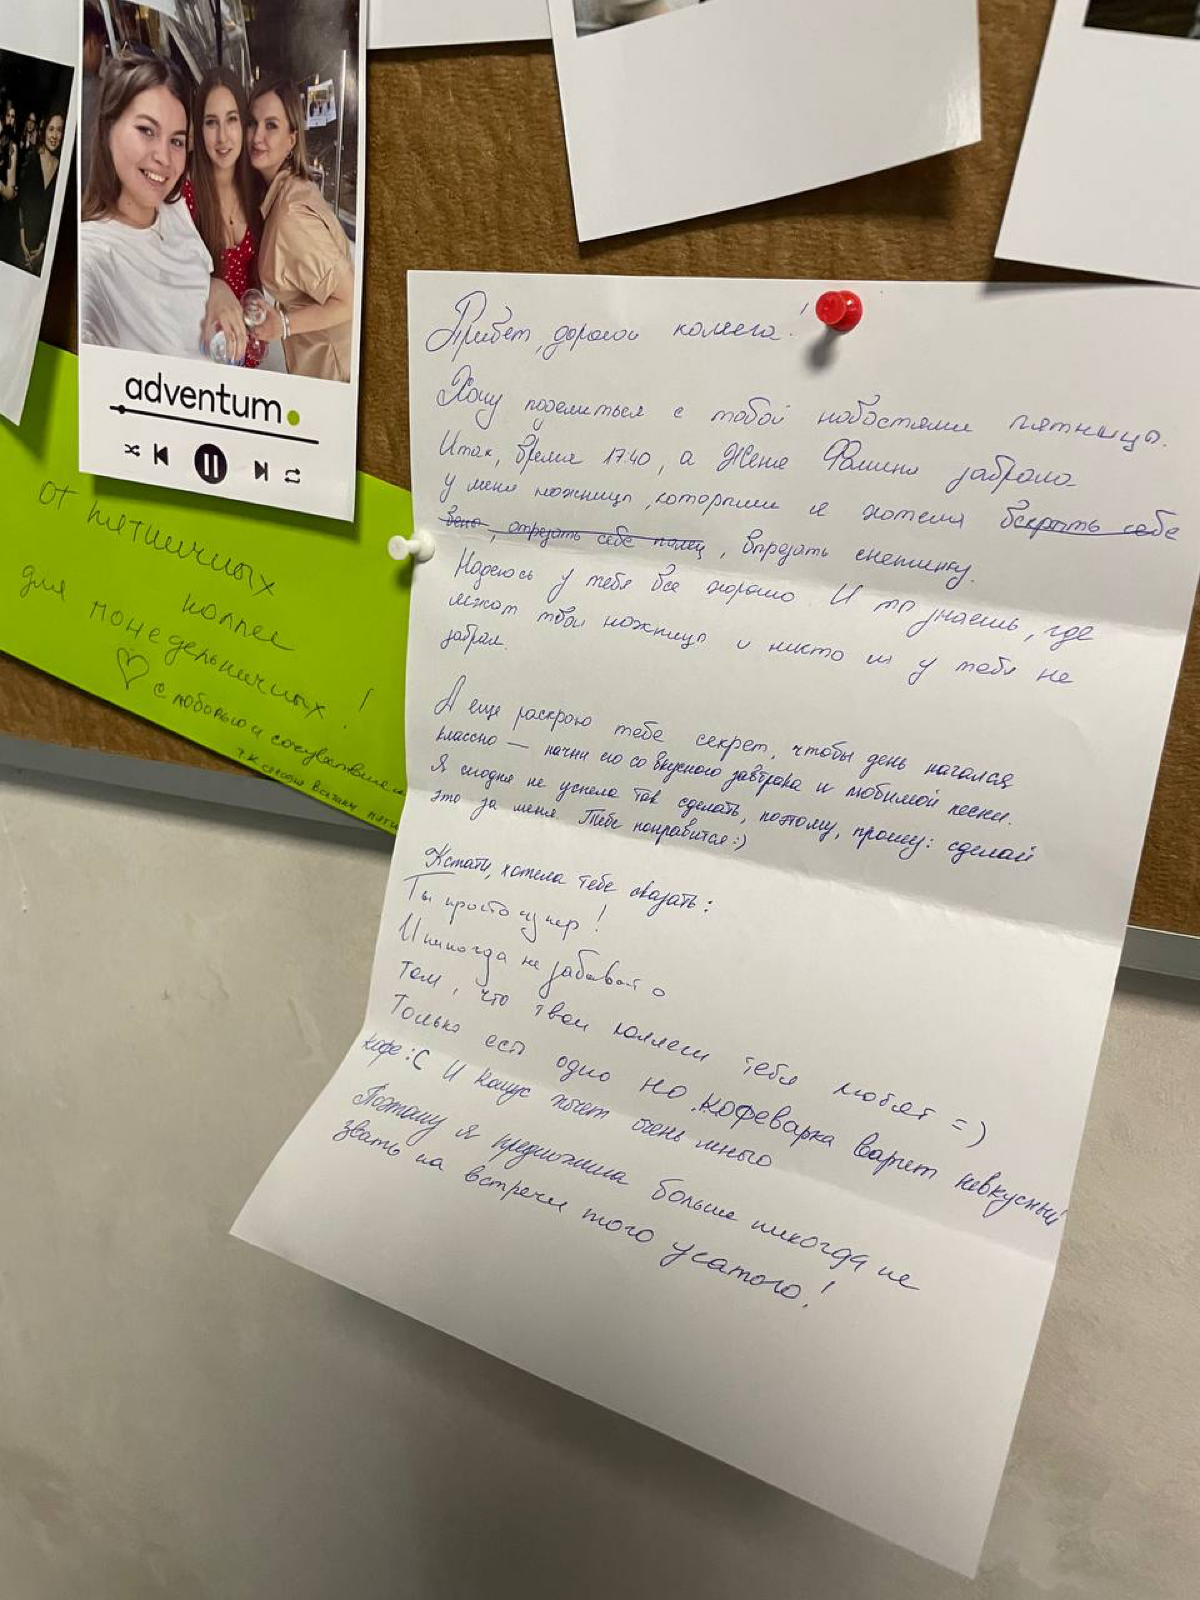 adventum.
от пятничных
коллег
для понедельничных!
♡ с любовью и сочувствием
т.к. сегодня
Привет, дорогой коллега!
Хочу поделиться с тобой новостями пятницы.
Итак, время 17:40, а Женя забрала
у меня ножницы, которыми я хотела вскрыть себе
вены, отрезать себе палец, вырезать снежинку.
Надеюсь у тебя все хорошо. И ты знаешь, где
лежат твои ножницы и никто их у тебя не
забрал.
А еще раскрою тебе секрет, чтобы день начался
классно — начни его со вкусного завтрака и любимой песни.
Я сегодня не успела так сделать, поэтому, прошу: сделай
это за меня. Тебе понравится:)
Кстати, хотела тебе сказать:
Ты просто супер!
И никогда не забывай о
том, что твои коллеги тебя любят =)
Только есть одно но. Кофеварка варит невкусный
кофе :С И хочет очень много
Поэтому я предложила больше никогда не
звать на встречи того усатого!